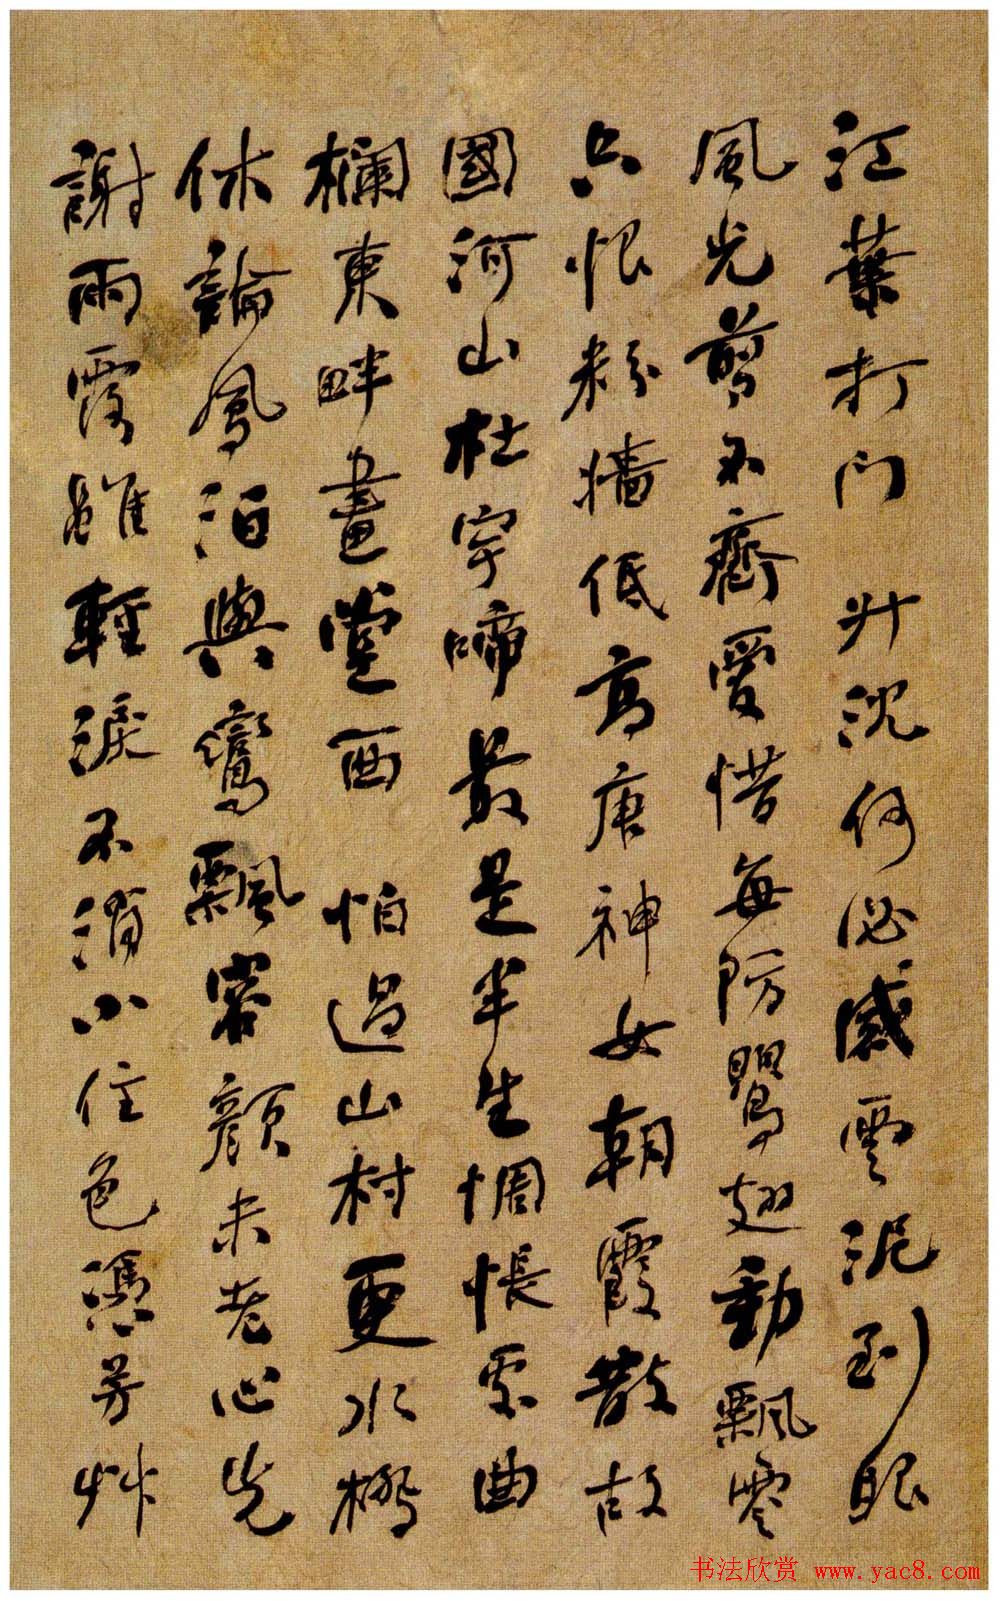 江葉打門 升沈何必感雲泥到眼
風光剪不齊愛惜每防鸎翅動飄零
只恨粉墻低高唐神女朝霞散故
國河山杜宇啼最是半生惆悵處曲
欄東畔畫堂西 怕過山村更水橋
休論鳳泊與鸞飄容顏未老心先
謝雨露雖輕淚不消小住色憑芳艸
書法欣賞 www.yac8.com